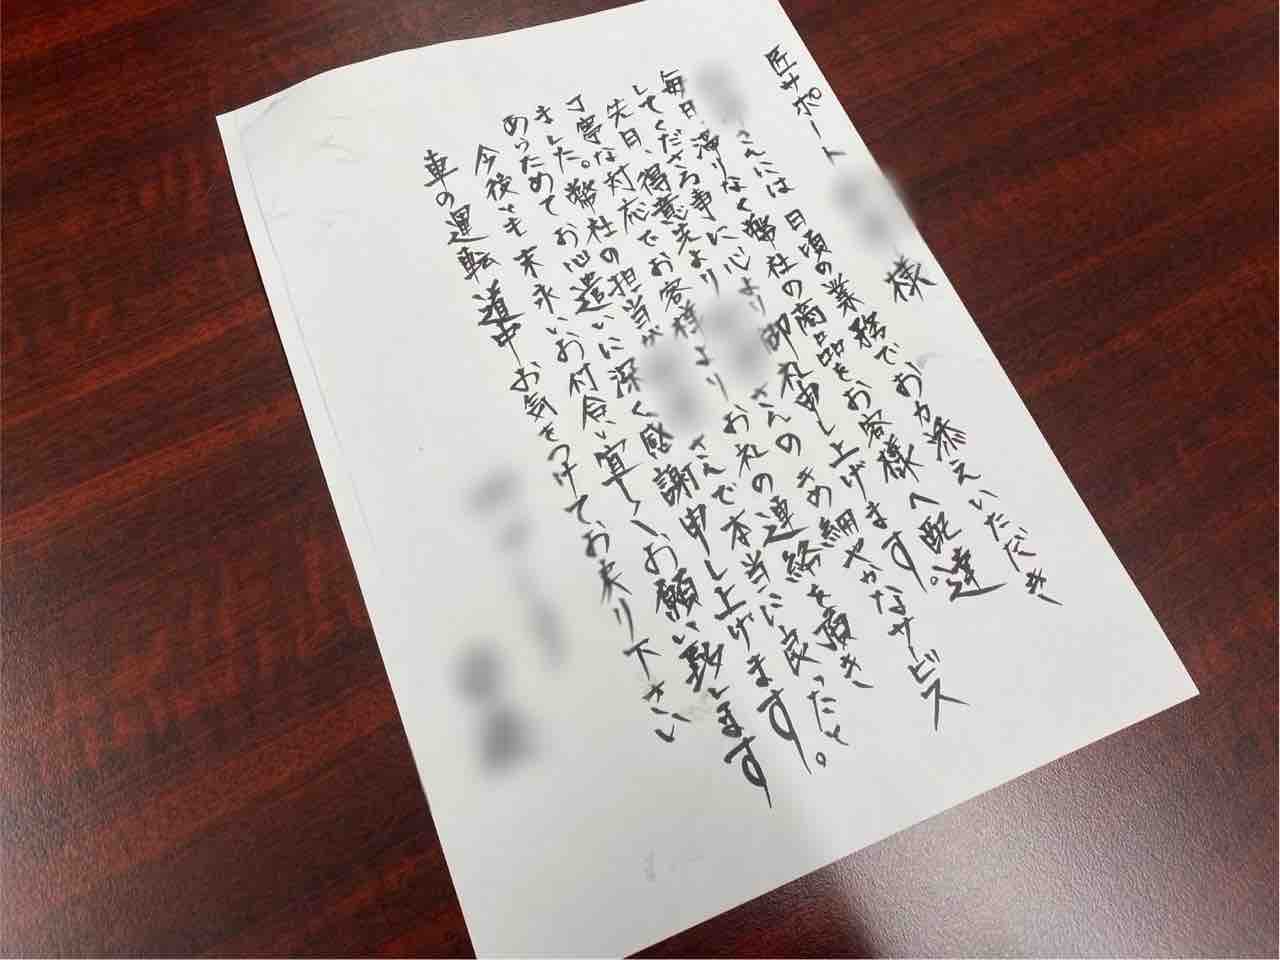 匠サポート 様
さんには 日頃の業務でお力添えいただき
毎日、滞りなく弊社の商品をお客様へ配達
してくださる事に心より御礼申し上げます。
先日、得意先より さんのきめ細やかなサービス
対応でお客様よりお礼の連絡を頂き
丁寧な弊社の担当が さんで本当に良ったと。
ました。お心遣いに深く感謝申し上げます。
あらためて
今後とも末永いお付合い宜しくお願い致します
車の運転道中お気をつけてお戻り下さい